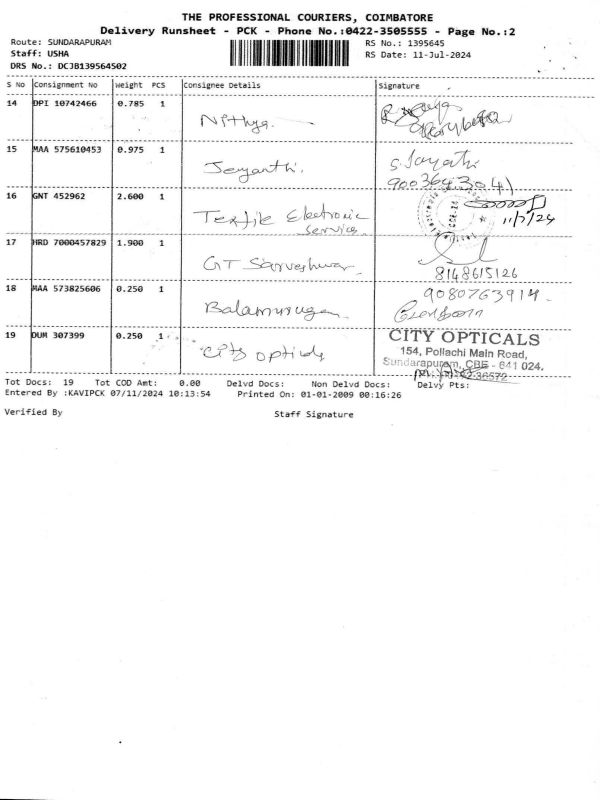 THE PROFESSIONAL COURIERS, COIMBATORE
Delivery Runsheet - PCK - Phone No.:0422-3505555 - Page No.:2
Route: SUNDARAPURAM RS No.: 1395645
Staff: USHA RS Date: 11-Jul-2024
DRS No.: DCJB139564502
S No Consignment No Weight PCS Consignee Details Signature
14 DPI 10742466 0.785 1
Nithya.
15 MAA 575610453 0.975 1
Jeyanthi. S. Jayathi
9003643041
16 GNT 452962 2.600 1
Textile Electronic
service. 11/7/24
17 HRD 7000457829 1.900 1
GT Sarveshwar 8148615126
18 MAA 573825606 0.250 1
Balamurugan. 9080763914.
19 DUM 307399 0.250 1
City opticals CITY OPTICALS
154, Pollachi Main Road,
Sundarapuram, CBE - 641 024.
Tot Docs: 19 Tot COD Amt: 0.00 Delvd Docs: Non Delvd Docs: Delvy Pts:
Entered By :KAVIPCK 07/11/2024 10:13:54 Printed On: 01-01-2009 00:16:26
Verified By Staff Signature